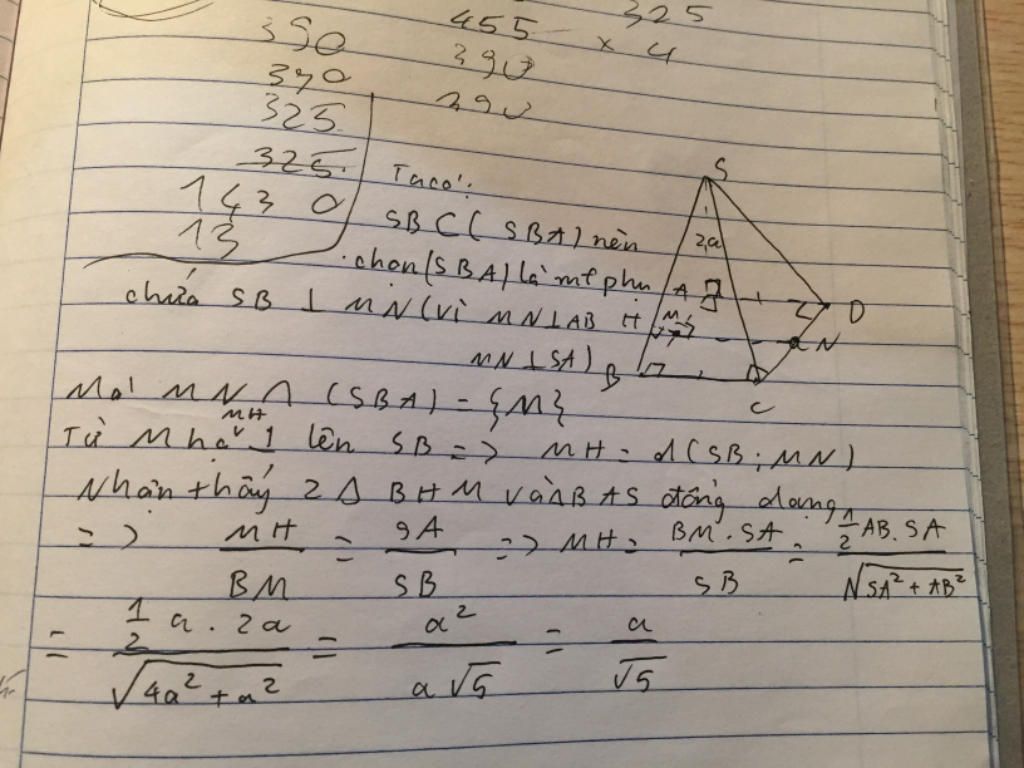 390
390
325
325
143 0
13
455
390
390
325
× 4
Ta có:
SB ⊂ (SBA) nên
chọn (SBA) là mf phụ
chứa SB ⊥ MN (vì MN⊥AB
MN⊥SA)
S
2a
A
D
H
M
N
B
C
Mà MN ∩ (SBA) = {M}
Từ M hạ MH ⊥ lên SB => MH = d(SB; MN)
Nhận thấy 2 Δ BHM và ΔBAS đồng dạng
=> MH/BM = SA/SB => MH = BM.SA/SB = 1/2 AB.SA/√(SA²+AB²)
= 1/2 a.2a/√(4a²+a²) = a²/a√5 = a/√5